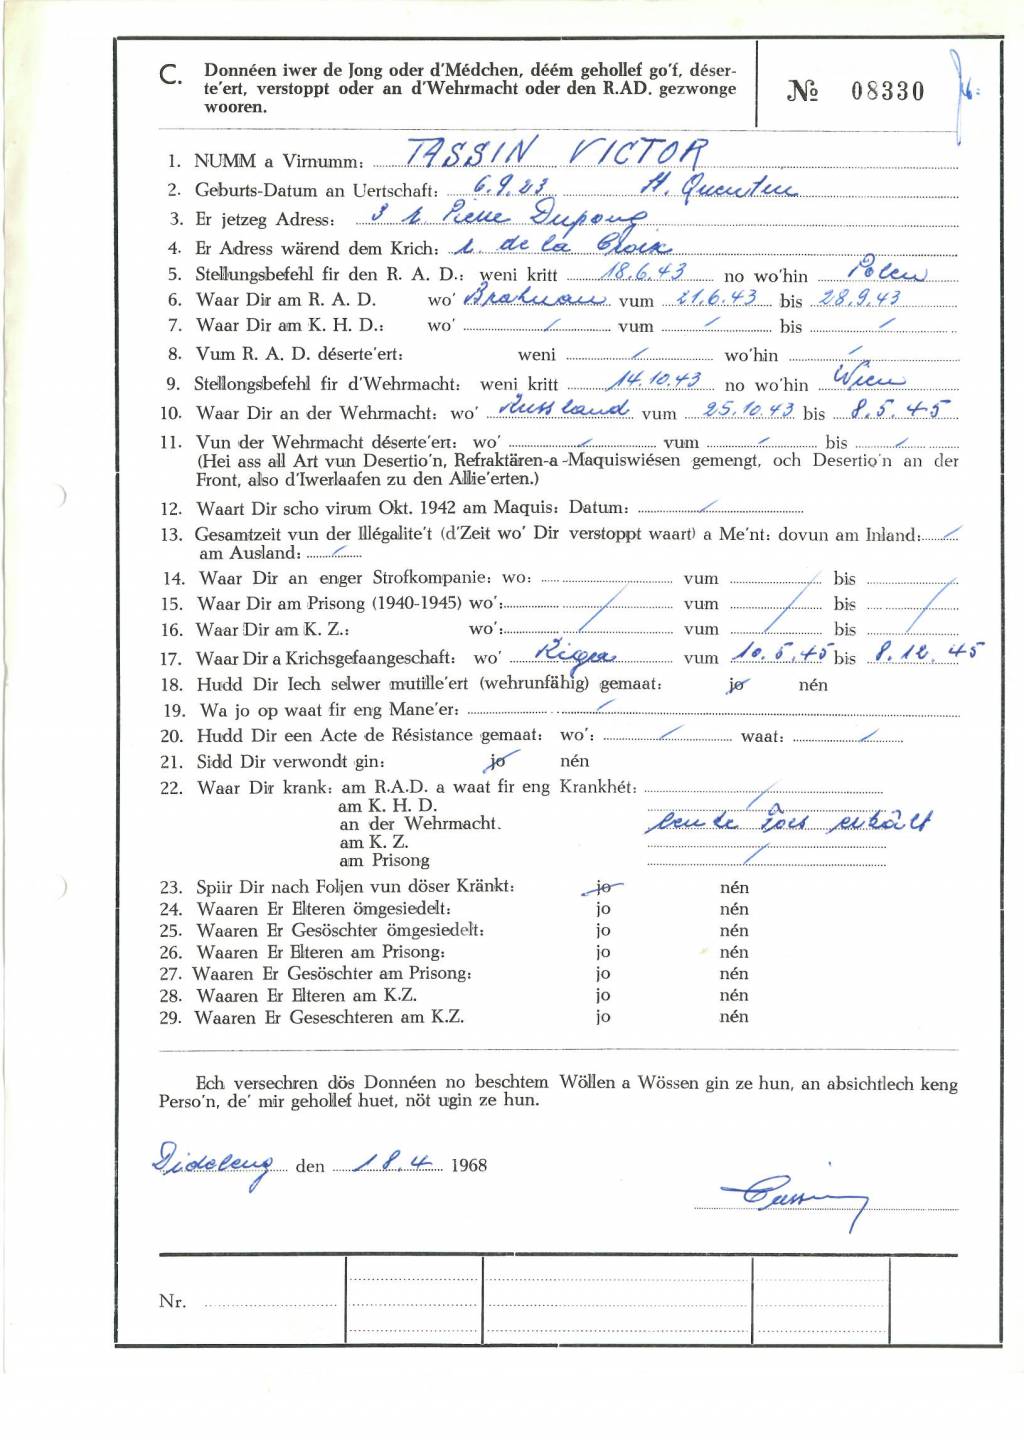 C. Donnéen iwer de Jong oder d'Médchen, déém gehollef go'f, déser-
te'ert, verstoppt oder an d'Wehrmacht oder den R.AD. gezwonge
wooren.
№ 08330
1. NUMM a Virnumm: TASSIN VICTOR
2. Geburts-Datum an Uertschaft: 6.9.23 St. Quentin
3. Er jetzeg Adress: 3 r. Pierre Dupong
4. Er Adress wärend dem Krich: r. de la Croix
5. Stellungsbefehl fir den R. A. D.: weni kritt 18.6.43 no wo'hin Polen
6. Waar Dir am R. A. D. wo' vum 21.6.43 bis 28.9.43
7. Waar Dir am K. H. D.: wo' / vum / bis /
8. Vum R. A. D. déserte'ert: weni / wo'hin /
9. Stellongsbefehl fir d'Wehrmacht: weni kritt 14.10.43 no wo'hin Wien
10. Waar Dir an der Wehrmacht: wo' Russland vum 25.10.43 bis 8.5.45
11. Vun der Wehrmacht déserte'ert: wo' / vum / bis /
(Hei ass all Art vun Desertio'n, Refraktären-a-Maquiswiésen gemengt, och Desertio'n an der
Front, also d'Iwerlaafen zu den Allie'erten.)
12. Waart Dir scho virum Okt. 1942 am Maquis: Datum: /
13. Gesamtzeit vun der Illégalite't (d'Zeit wo' Dir verstoppt waart) a Me'nt: dovun am Inland: /
am Ausland: /
14. Waar Dir an enger Strofkompanie: wo: vum bis
15. Waar Dir am Prisong (1940-1945) wo': / vum / bis /
16. Waar Dir am K. Z.: wo': vum bis
17. Waar Dir a Krichsgefaangeschaft: wo' Riga vum 10.5.45 bis 8.12.45
18. Hudd Dir Iech selwer mutille'ert (wehrunfähig) gemaat: jo nén
19. Wa jo op waat fir eng Mane'er: /
20. Hudd Dir een Acte de Résistance gemaat: wo': / waat: /
21. Sidd Dir verwondt gin: jo nén
22. Waar Dir krank: am R.A.D. a waat fir eng Krankhét: /
am K. H. D.
an der Wehrmacht.
am K. Z.
am Prisong /
23. Spiir Dir nach Foljen vun döser Kränkt: jo nén
24. Waaren Er Elteren ömgesiedelt: jo nén
25. Waaren Er Gesöschter ömgesiedelt: jo nén
26. Waaren Er Elteren am Prisong: jo nén
27. Waaren Er Gesöschter am Prisong: jo nén
28. Waaren Er Elteren am K.Z. jo nén
29. Waaren Er Geseschteren am K.Z. jo nén
Ech versechren dös Donnéen no beschtem Wöllen a Wössen gin ze hun, an absichtlech keng
Perso'n, de' mir gehollef huet, nöt ugin ze hun.
Dideleng den 18.4 1968
Tassin
Nr.